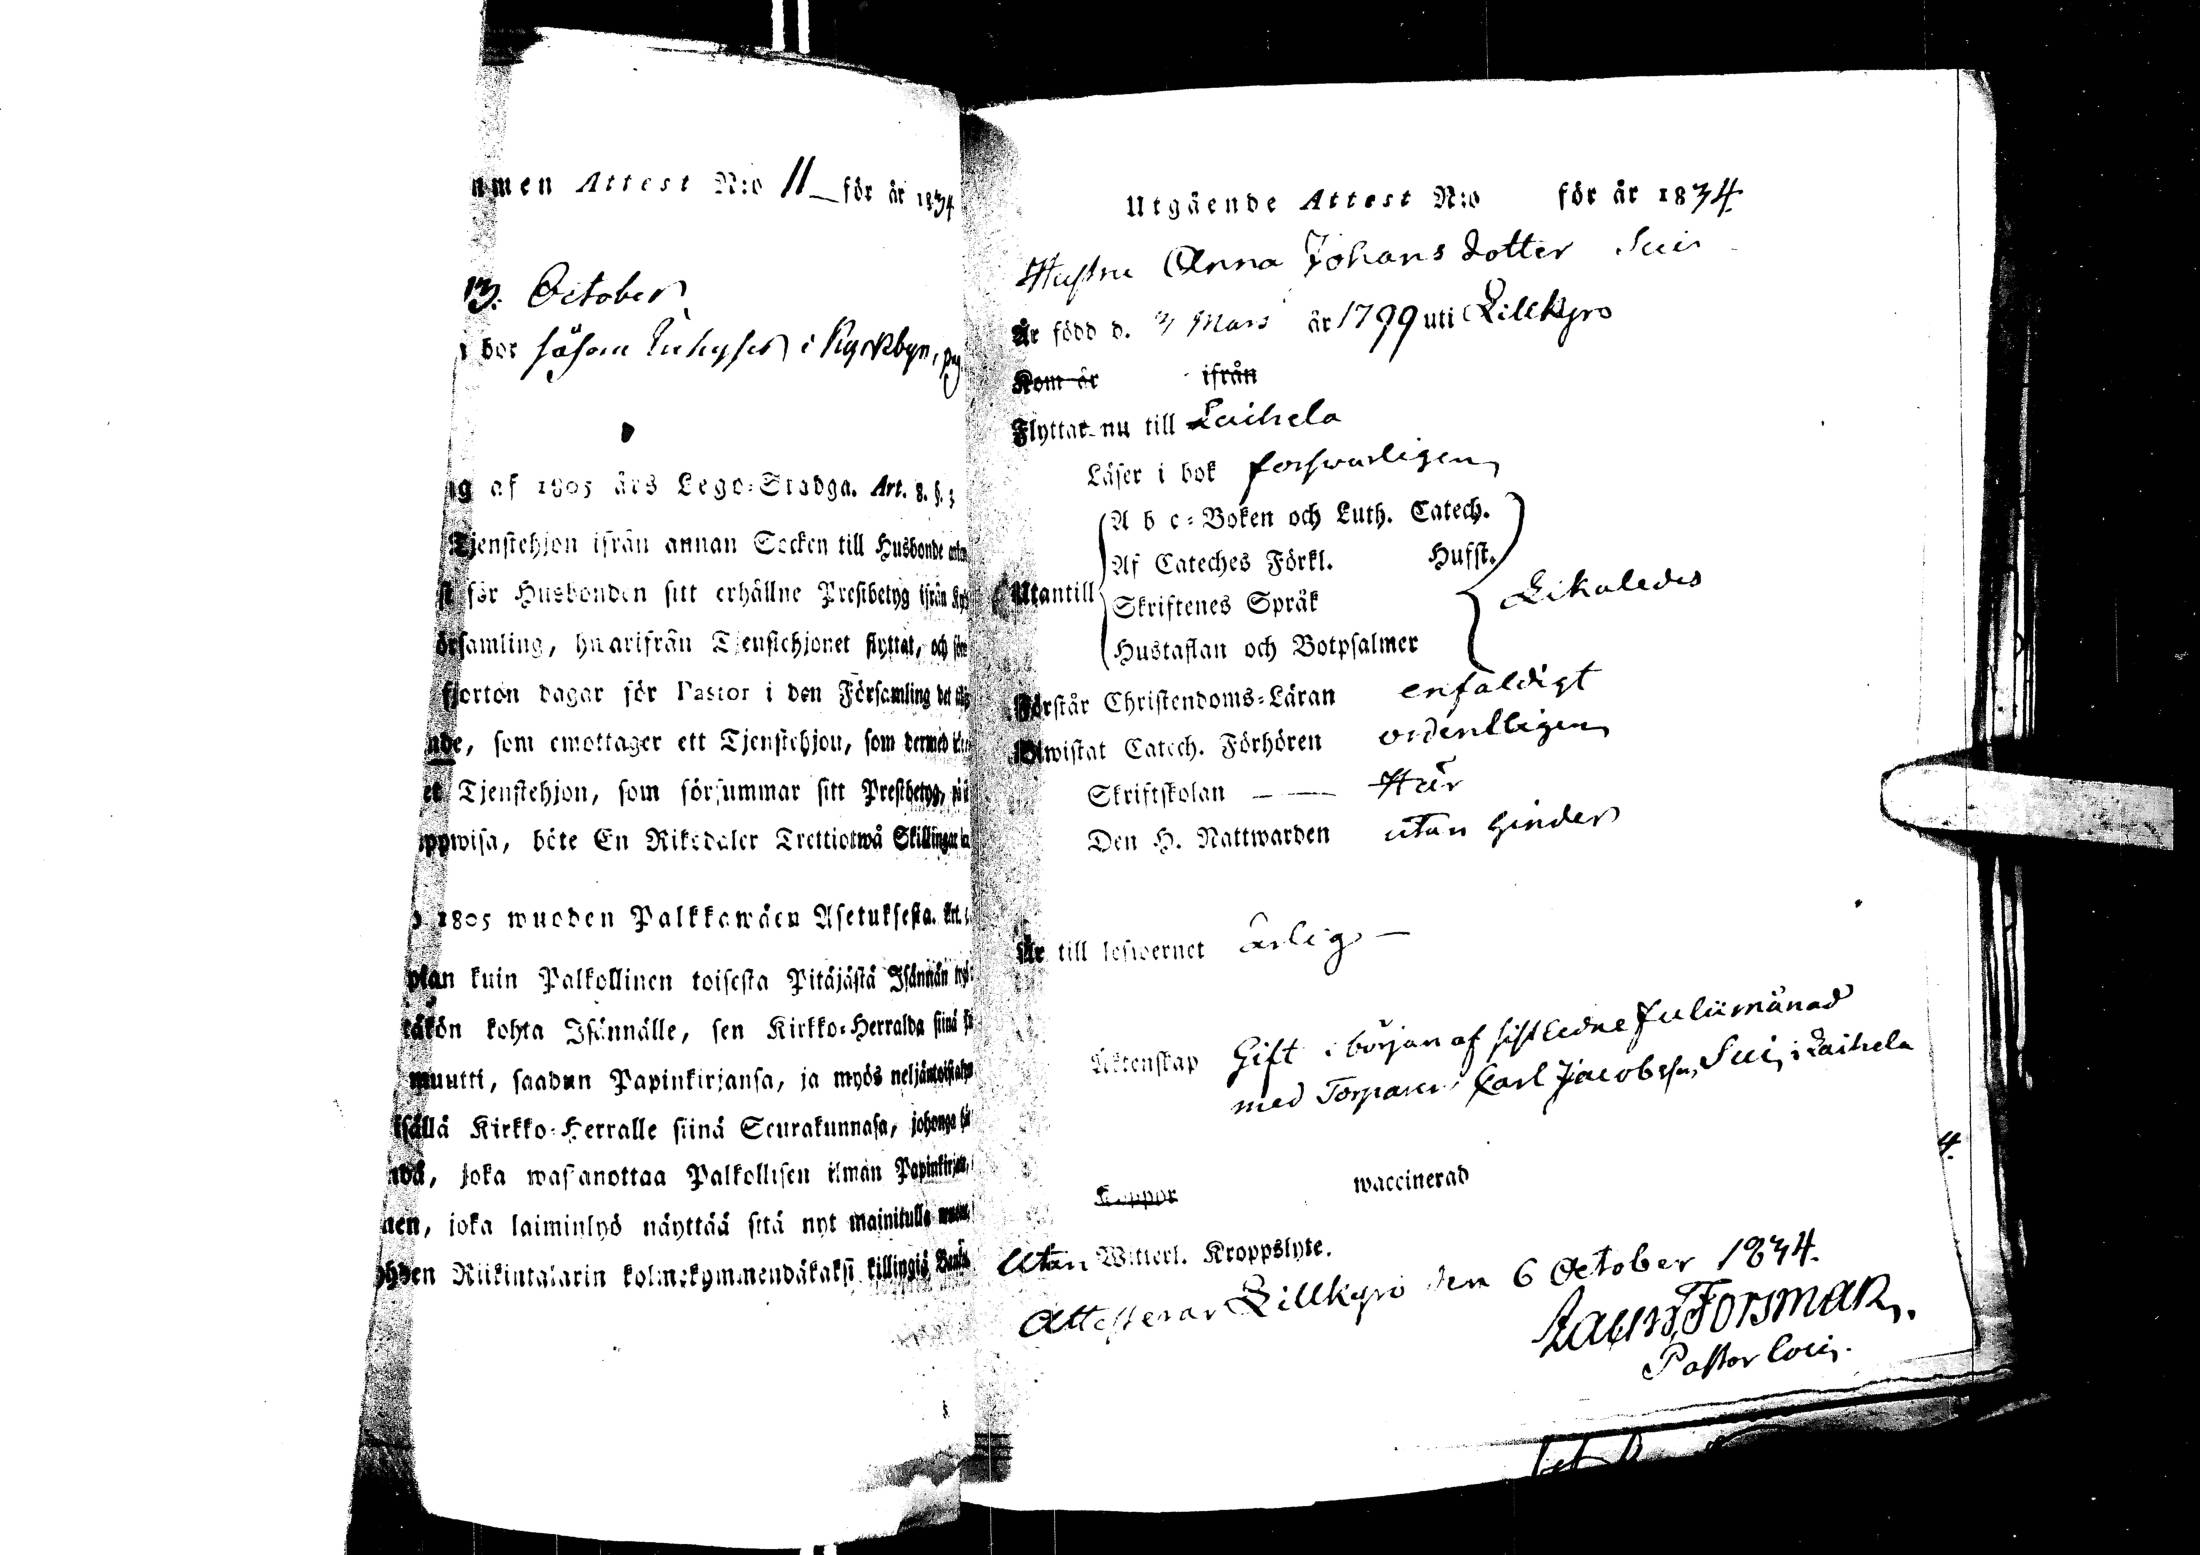 mmen Attest N:o 11 för år 1834
13. October
i bor såsom i Kyrkbyn,
ng af 1805 års Lego-Stadga. Art. 8. §. 3
Tjenstehjon ifrån annan Socken till Husbonde
st för Husbonden sitt erhållne Prestbetyg ifrån
örsamling, hwarifrån Tjenstehjonet flyttat, och
fjorton dagar för Pastor i den Församling det
nde, som emottager ett Tjenstehjon, som dermed
et Tjenstehjon, som försummar sitt Prestbetyg,
uppwisa, böte En Riksdaler Trettiotwå Skillingar
1805 wuoden Palkkawäen Asetuksesta. Art.
pian kuin Palkollinen toisesta Pitäjästä Isännän
täkön kohta Isännälle, sen Kirkko-Herralda siinä
muutti, saadun Papinkirjansa, ja myös
sisällä Kirkko-Herralle siinä Seurakunnasa, johonga
ndä, joka wastanottaa Palkollisen ilman Papinkirjan,
nen, joka laiminlyö näyttää sitä nyt mainitulla
yhden Riikintalarin kolmekymmendäkaksi killingiä Banko
Utgående Attest N:o för år 1834.
Hustru Anna Johansdotter Sui
Är född d. 3 Mars år 1799 uti Lillkyro
Kom år ifrån
Flyttat nu till Laihela
Läser i bok forswarligen
A b c-Boken och Luth. Catech.
Af Cateches Förkl. Husst.
Utantill Skriftenes Språk Likaledes
Hustaflan och Botpsalmer
Förstår Christendoms-Läran enfaldigt
Biwistat Catech. Förhören ordentligen
Skriftskolan — — Här
Den H. Nattwarden utan hinder
Är till lefwernet ärlig —
Äktenskap Gift i början af sistledne Julii månad
med Torparen Carl Jacobsson Sui, i Laihela
4.
Koppor waccinerad
Utan Witterl. Kroppslyte.
Attesterar Lillkyro den 6 October 1834.
Laur. Forsman.
Pastor loci.